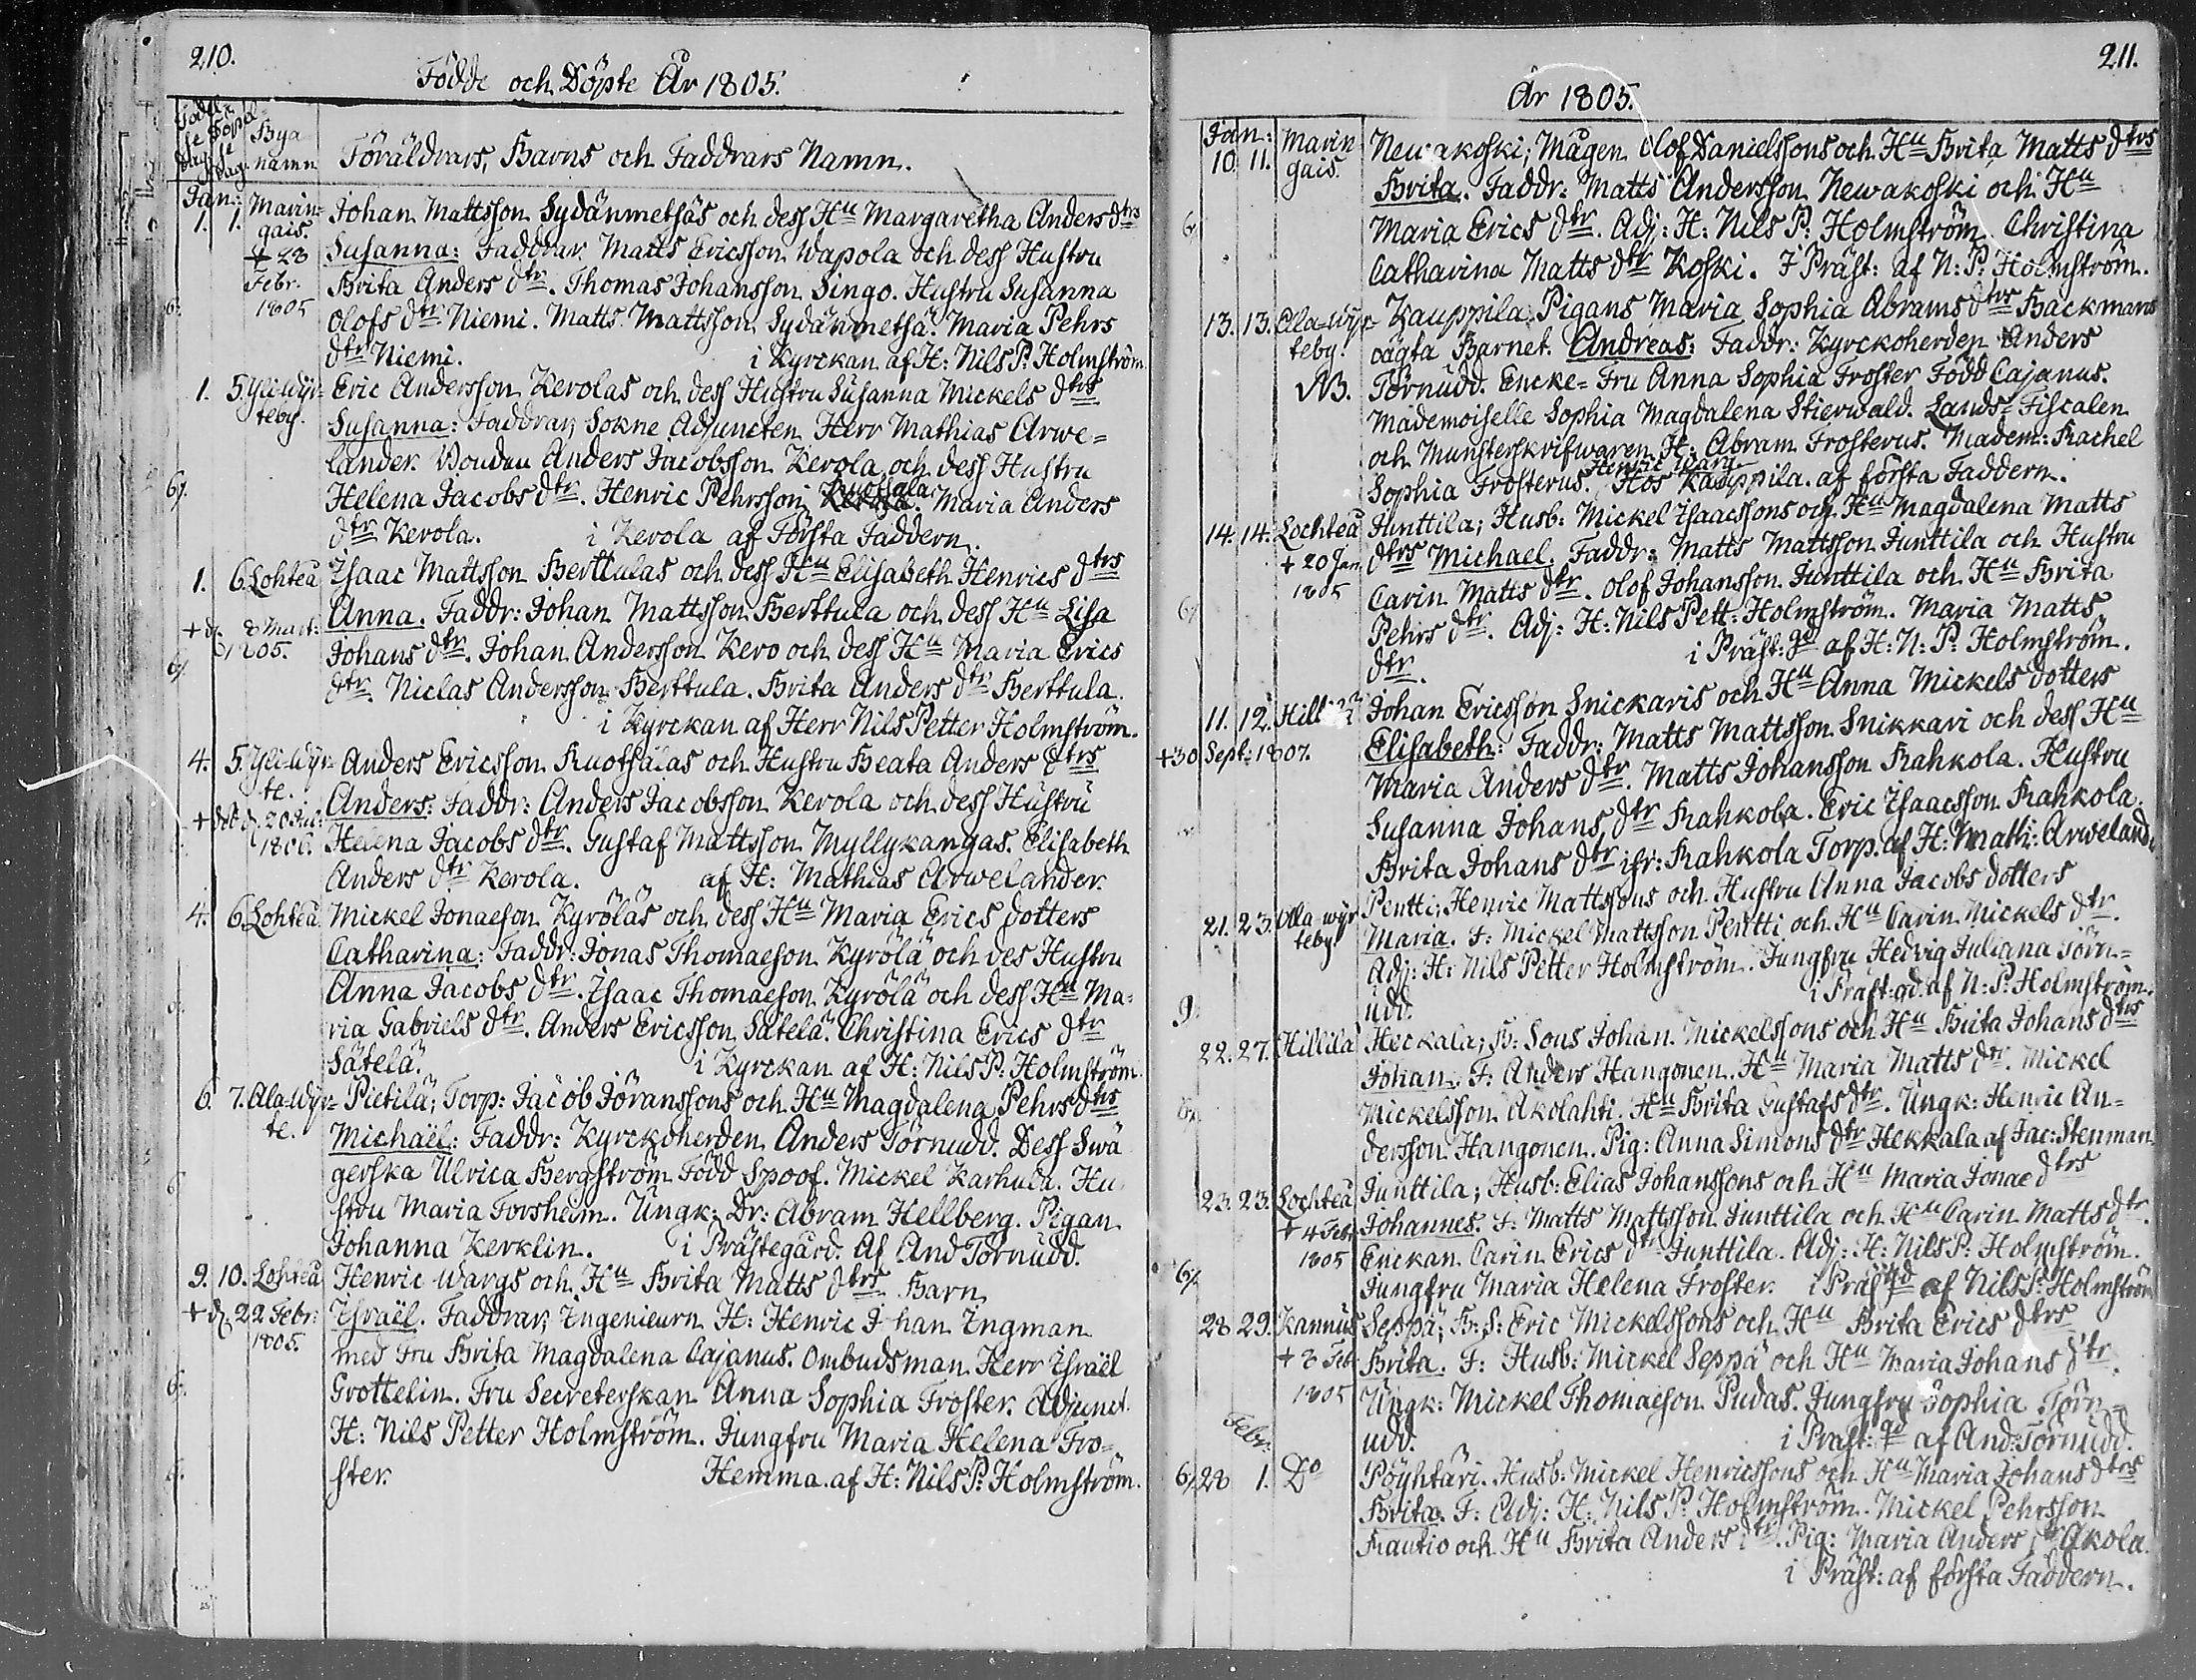 210.
Födde och Döpte År 1805.
Födelse dag Döpelse dag Bya namn Föräldrars, Barns och Faddrars Namn.
Jan: 1. 1. Marin= Johan Mattsson Sydänmetsäs och dess Hu Margaretha Anders dtrs
gais. Susanna: Faddrar Matts Ericsson Wapola och dess Hustru
+ 28 Febr. Brita Anders dtr. Thomas Johansson Singo. Hustru Susanna
1805 Olofs dtr Niemi. Matts Mattsson Sydänmetsä. Maria Pehrs
dtr Niemi. i Kyrckan af H: Nils P: Holmström.
1. 5. Yli-Wijr= Eric Andersson Kerolas och dess Hustru Susanna Mickels dtrs
teby. Susanna: Faddrar; Sokne Adjuncten Herr Mathias Arwe=
lander. Bonden Anders Jacobsson Kerola och dess Hustru
Helena Jacobs dtr. Henric Pehrsson Ruotsala. Maria Anders
dtr Kerola. i Kerola af Första Faddern.
1. 6. Lohteå Isaac Mattsson Berttulas och dess Hu Elisabeth Henrics dtrs
Anna. Faddr: Johan Mattsson Berttula och dess Hu Lisa
+ d. 8 Mart: 1805. Johans dtr. Johan Andersson Kero och dess Hu Maria Erics
dtr. Niclas Andersson Berttula. Brita Anders dtr Berttula.
i Kyrckan af Herr Nils Petter Holmström.
4. 5. Yli-Wijr= Anders Ericsson Ruotsalas och Hustru Beata Anders dtrs
te. Anders: Faddr: Anders Jacobsson Kerola och dess Hustru
1806. Helena Jacobs dtr. Gustaf Mattsson Myllykangas. Elisabeth
Anders dtr Kerola. af H: Mathias Arwelander.
4. 6. Lohteå Mickel Jonaeson Kyröläs och dess Hu Maria Erics dotters
Catharina: Faddr: Jonas Thomaeson Kyrölä och des Hustru
Anna Jacobs dtr. Isaac Thomaeson Kyrölä och dess Hu Ma=
ria Gabriels dtr. Anders Ericsson Sätelä. Christina Erics dtr
Sätelä. i Kyrckan af H: Nils P: Holmström.
6. 7. Ala-Wijr= Pietilä; Torp: Jacob Jöranssons och Hu Magdalena Pehrs dtrs
te. Michaël: Faddr: Kyrckoherden Anders Törnudd. Dess Swä
gerska Ulrica Bergström Född Spoof. Mickel Karhula. Hu
stru Maria Forsheim. Ungk: Dr: Abram Hellberg. Pigan
Johanna Kerklin. i Prästegård. Af And Törnudd.
9. 10. Lohteå Henric Wargs och Hu Brita Matts dtrs Barn
+ d. 22 Febr: Israël. Faddrar; Ingenieurn H: Henric Johan Ingman
1805. med Fru Brita Magdalena Cajanus. Ombudsman Herr Israël
Grottelin. Fru Secreterskan Anna Sophia Froster. Adjunct.
H: Nils Petter Holmström. Jungfru Maria Helena Fro=
ster. Hemma. af H: Nils P: Holmström.
211.
År 1805.
Jan: 10. 11. Marin Newakoski; Mågen Olof Danielssons och Hu Brita Matts dtrs
gais. Brita. Faddr: Matts Andersson Newakoski och Hu
Maria Erics dtr. Adj: H: Nils P: Holmström. Christina
Catharina Matts dtr Koski. I Präst: af N: P: Holmström.
13. 13. Ala-Wijr= Kauppila, Pigans Maria Sophia Abrams dtrs Backmans
teby. oägta Barnet. Andreas: Faddr: Kyrckoherden Anders
NB. Törnudd. Encke-Fru Anna Sophia Froster Född Cajanus.
Mademoiselle Sophia Magdalena Stierwald. Lands-Fiscalen
och Munsterskrifwaren H: Abram Frosterus. Madem: Rachel
Sophia Frosterus. Hos Henric Warg Kauppila. af första Faddern.
14. 14. Lochteå Junttila; Husb: Mickel Isaacssons och Hu Magdalena Matts
+ 20 Jan. dtrs Michael. Faddr: Matts Mattsson Junttila och Hustru
1805 Carin Matts dtr. Olof Johansson Junttila och Hu Brita
Pehrs dtr. Adj: H: Nils Pett: Holmström. Maria Matts
dtr. i Präst: gd af H: N: P: Holmström.
11. 12. Hillilä Johan Ericsson Snickaris och Hu Anna Mickels dotters
+30 Sept: 1807. Elisabeth: Faddr: Matts Mattsson Snikkari och dess Hu
Maria Anders dtr. Matts Johansson Rahkola. Hustru
Susanna Johans dtr Rahkola. Eric Isaacsson Rahkola.
Brita Johans dtr ifr: Rahkola Torp. af H: Math: Arweland
21. 23. Alla wijr Pentti; Henric Mattssons och Hustru Anna Jacobs dotters
teby Maria. F: Mickel Mattsson Pentti och Hu Carin Mickels dtr.
Adj: H: Nils Petter Holmström. Jungfru Hedvig Juliana Törn=
udd. i Präst: gd. af N: P: Holmström.
22. 27. Hillilä Heckala; B: Sons Johan Mickelssons och Hu Brita Johans dtrs
Johan. F: Anders Hangonen. Hu Maria Matts dtr. Mickel
Mickelsson Akolahti. Hu Brita Gustafs dtr. Ungk: Henric An=
dersson Hangonen. Pig: Anna Simons dtr Hekkala af Jac: Stenman
23. 23. Lochteå Junttila; Husb: Elias Johanssons och Hu Maria Jonae dtrs
+ 4 Feb. Johannes. F: Matts Mattsson Junttila och Hu Carin Matts dtr.
1805 Enckan Carin Erics dtr Junttila. Adj: H: Nils P: Holmström.
Jungfru Maria Helena Froster. i Präst: gd af Nils P: Holmström
28. 29. Kannus Seppä; B: S: Eric Mickelssons och Hu Brita Erics dtrs
+ 8 Feb Brita. F: Husb: Mickel Seppä och Hu Maria Johans dtr.
1805 Ungk: Mickel Thomaeson Pudas. Jungfru Sophia Törn=
Febr: udd. i Präst: gd af And: Törnudd.
28 1. Do Pöyhtäri. Husb: Mickel Henricssons och Hu Maria Johans dtrs
Brita. F: Adj: H: Nils P: Holmström. Mickel Pehrsson
Rautio och Hu Brita Anders dtr. Pig: Maria Anders dtr Akola.
i Präst: af första Faddern.